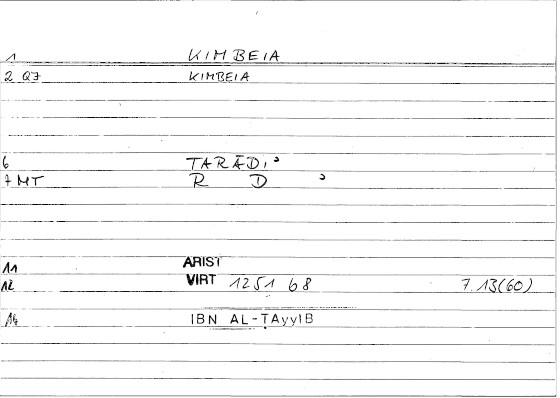 1 KIMBEIA
2 QJ KIMBEIA
6 TARĀDIʾ
7 MT R D ʾ
11 ARIST
12 VIRT 1251 b 8 7.13(60)
14 IBN AL-ṬAyyIB